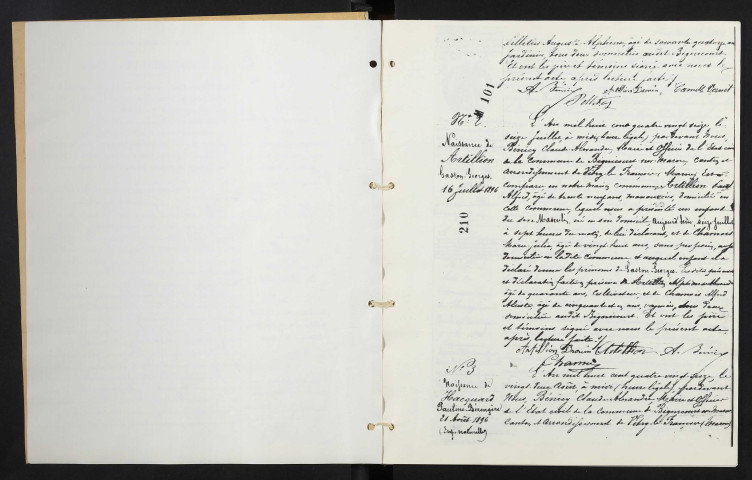 Pelletier Auguste Alphonse, âgé de soixante quatorze ans
jardinier, tous deux domiciliés audit Bignicourt
Et ont les père et témoins signé avec nous le
présent acte après lecture faite
A. Béni
Camille
Pelletier
101
N° 2
Naissance de
Artillion
Gaston Georges
16 Juillet 1896
210
L'An mil huit cent quatre vingt seize le
seize Juillet, à midi, heure légale, par devant Nous,
Bénicy Claude Alexandre, Maire et Officier de l'Etat civil
de la Commune de Bignicourt sur Marne, Canton et
arrondissement de Vitry le François (Marne) Est
comparu en notre maison commune, Artillion
Alfred, âgé de trente ans, manouvrier, domicilié en
cette commune, lequel nous a présenté un enfant
du sexe Masculin, né en son domicile, aujourd'hui, seize Juillet
à sept heures du matin, de lui déclarant, et de Chamois
Marie Julia, âgée de vingt huit ans, sans profession,
domiciliée en la dite commune et auquel enfant il a
déclaré donner les prénoms de Gaston Georges. Les dites présentation
et déclaration faites en présence de Artillion Alphonse
âgé de quarante ans, cultivateur, et de Chamois Alfred
âgé de cinquante ans, tous deux
domiciliés audit Bignicourt. Et ont les père
et témoins signé avec nous le présent acte
après lecture faite
Artillion Artillion A. Béni
Chamois
N° 3
Naissance de
Hacquard
Pauline Bérengère
21 Août 1896
(Enf. naturelle)
L'An mil huit cent quatre vingt seize, le
vingt deux Août, à midi (heure légale), par devant
Nous, Bénicy Claude Alexandre Maire et Officier
de l'Etat civil de la Commune de Bignicourt sur Marne
Canton et Arrondissement de Vitry le François (Marne)